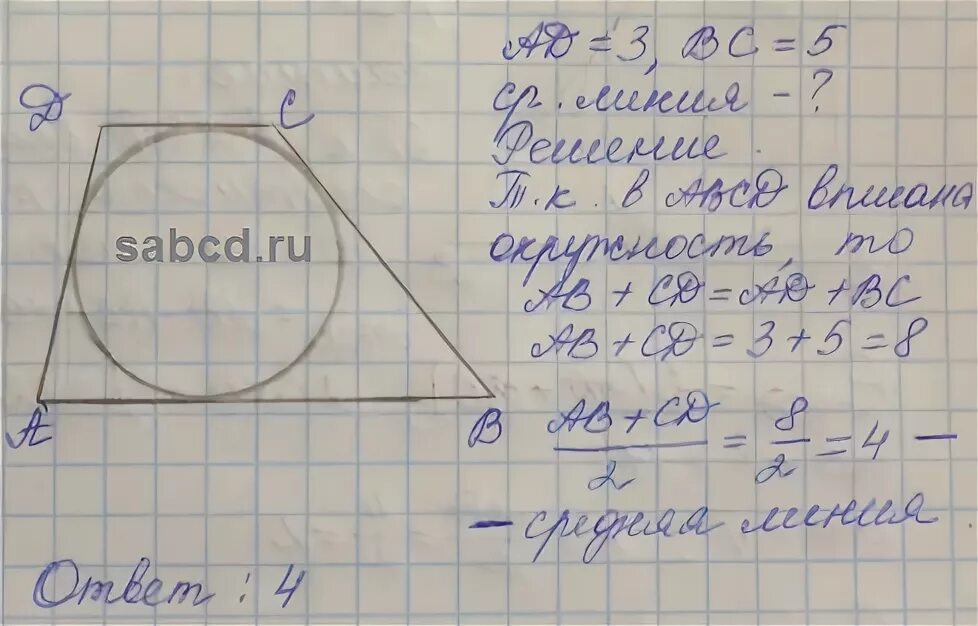 AD = 3, BC = 5
ср. линия - ?
Решение.
Т.к. в ABCD вписана
окружность, то
AB + CD = AD + BC
AB + CD = 3 + 5 = 8
(AB + CD)/2 = 8/2 = 4 —
— средняя линия
D C
sabcd.ru
A B
Ответ: 4